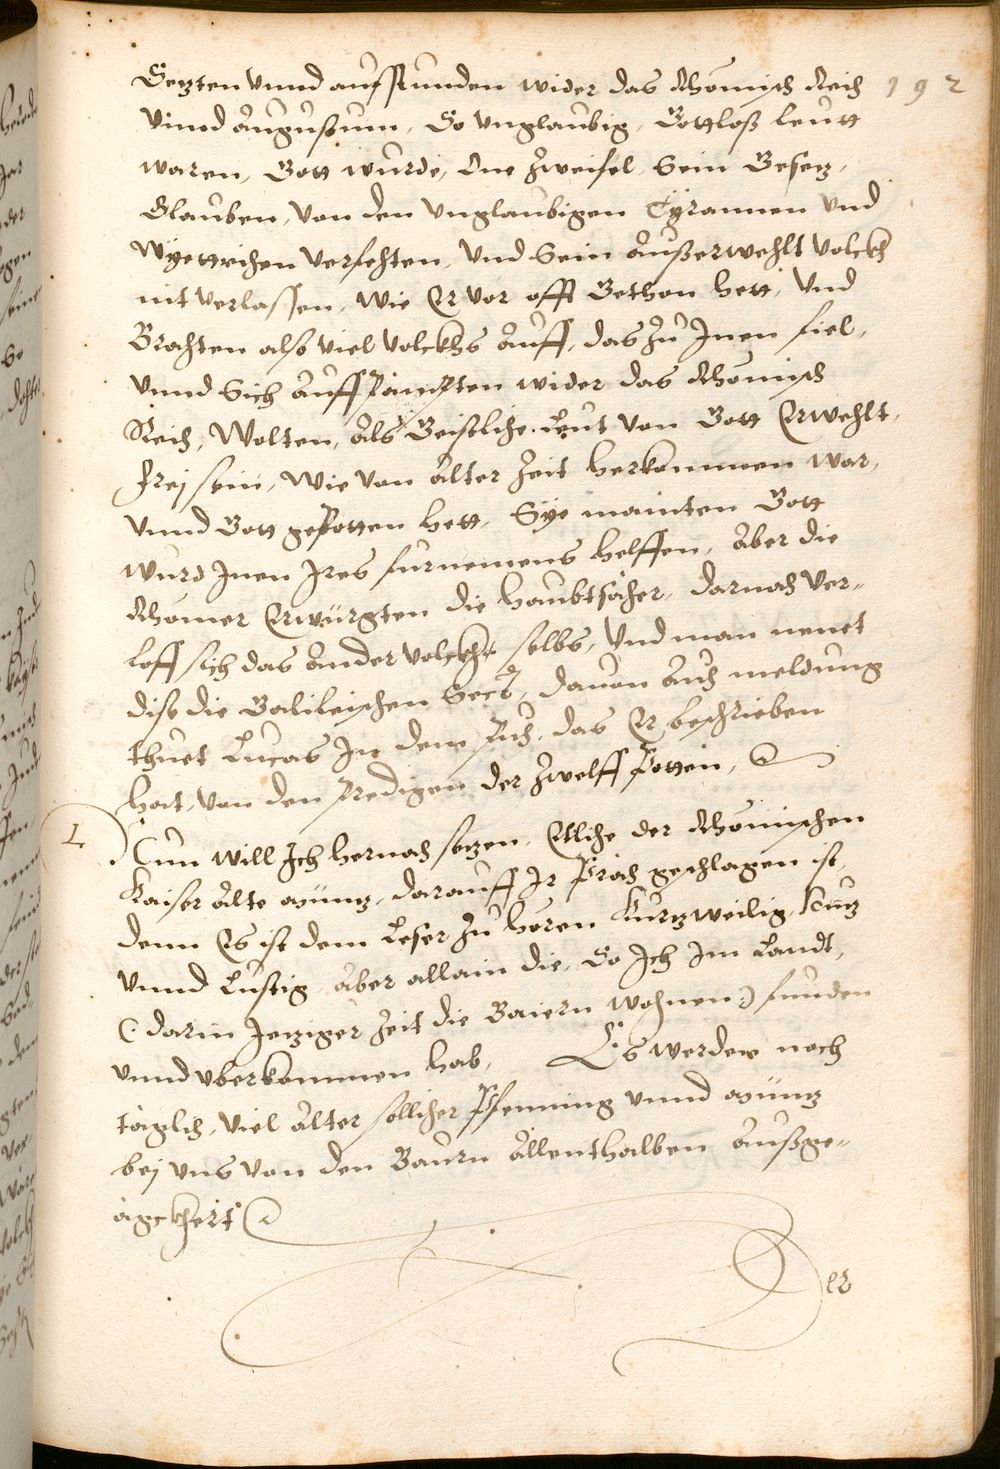 Setzten vnnd auffstunden wider das Rhömisch Reich 192
vnnd Augustum, So vnglaubig, Gottloß leutt
waren, Gott wurde, One Zweifel, Sein Gesetz,
Glauben, von den vnglaubigen Tÿrannen vnd
Wÿettrichen verfechten, vnd Sein Außerwehlt volckh
nit verlassen, wie Er vor offt Gethon hett, vnd
Brachten also viel volckhs auff, das Zu Inen fiel,
vnnd Sich auff wider das Rhömisch
Reich, Wolten, als Geistliche Leut von Gott Erwehlt,
frej sein, wie von alter Zeit herkommen war,
vnnd Gott gepotten hett, Sÿe mainten Gott
wurd Inen Ires furnemens helffen, aber die
Rhömer Erwürgten die haubtsächer, darnach ver-
loff sich das ander volckh selbs, vnd man nenet
dise die Galileischen Sect, dauon auch meldung
thuet Lucas In dem puch, das Er beschrieben
hat, von den predigen der Zwelff potten,
L
Nun will Ich hernach setzen, Etliche der Rhömischen
Kaiser alte müntz, darauff Ir geschlagen ist,
denn Es ist dem Leser Zu hören Kurtzweilig, Nutz
vnnd Lustig, aber allain die, So Ich Im Landt,
(: darin Jetziger Zeit die Baiern wohnen :) funden
vnnd vberkommen hab, Es werden noch
täglich, viel alter sollicher pfenning vnnd müntz
bej vns von den Baurn allenthalben außge-
äckhert
Der